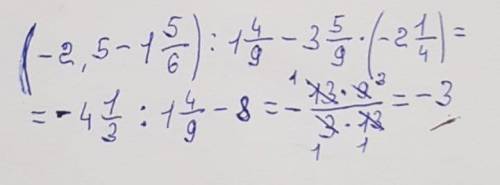 (-2,5 - 1 5/6) : 1 4/9 - 3 5/9 · (-2 1/4) =
= -4 1/3 : 1 4/9 - 8 = - (13 · 9)/(3 · 13) = -3